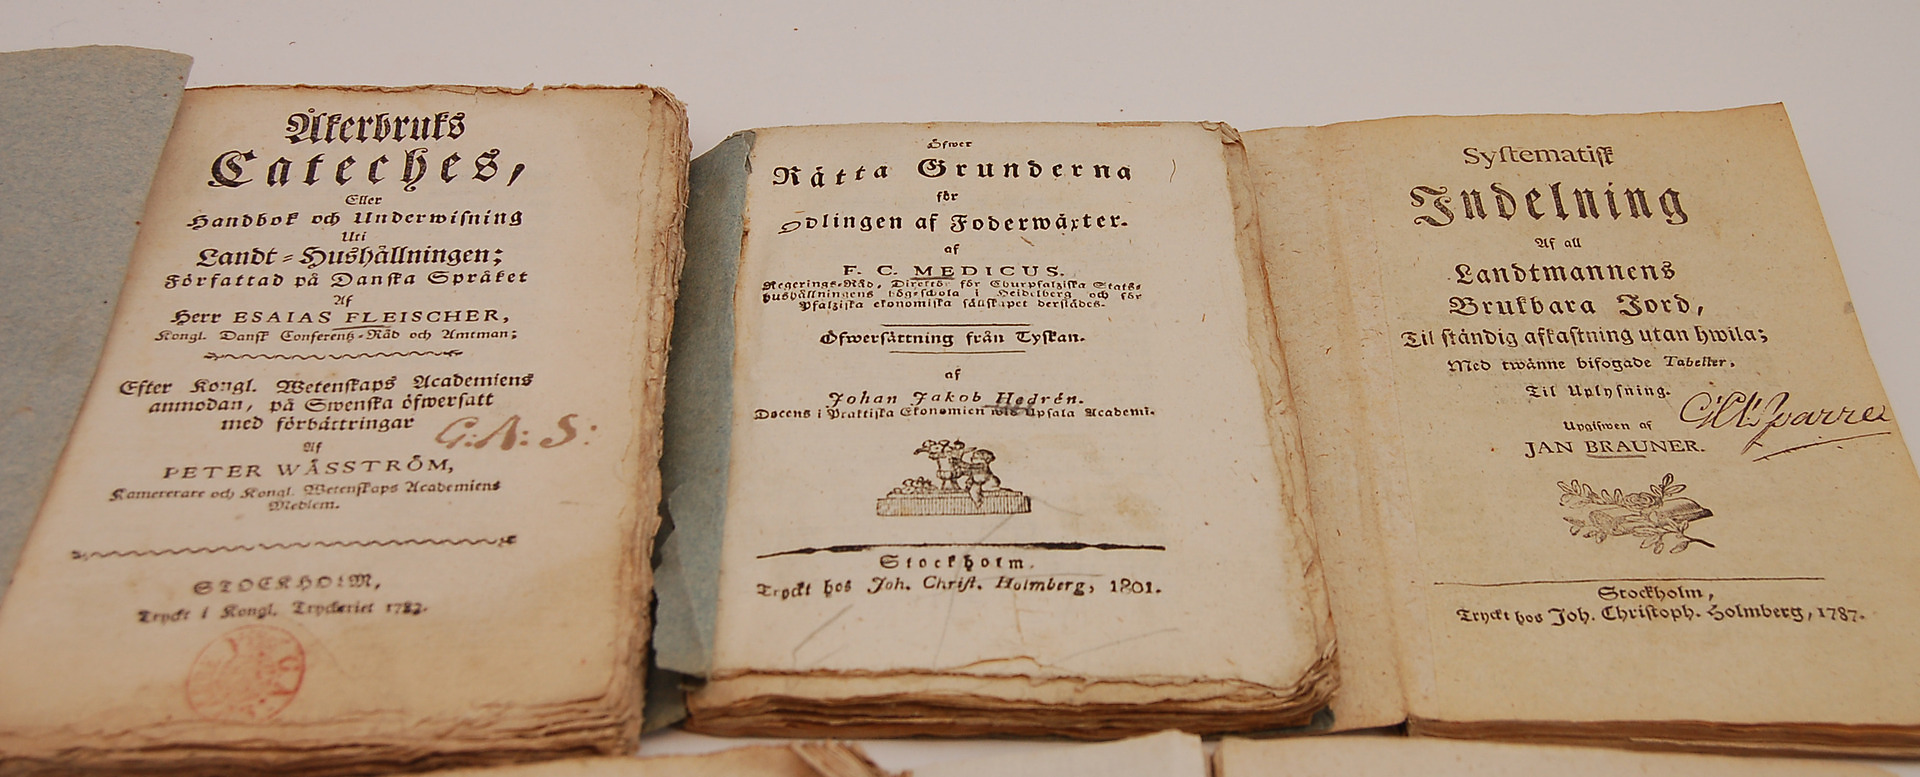 Åkerbruks
Cateches,
Eller
Handbok och Underwisning
Uti
Landt-Hushållningen;
Författad på Danska Språket
Af
Herr ESAIAS FLEISCHER,
Kongl. Dansk Conferentz-Råd och Amtman;
Efter Kongl. Wetenskaps Academiens
anmodan, på Swenska öfwersatt
med förbättringar
G: A: S:
Af
PETER WÅSSTRÖM,
Kamererare och Kongl. Wetenskaps Academiens
Medlem.
STOCKHOLM,
Tryckt i Kongl. Tryckeriet
Öfwer
Rätta Grunderna
för
Odlingen af Foderwäxter.
af
F. C. MEDICUS.
Regerings-Råd, Direktör för Churpfalziska Stats-
hushållningens högeschola i Heidelberg och för
Pfalziska ekonomiska sällskapet derstädes.
Öfwersättning från Tyskan.
af
Johan Jakob Hedrén.
Docens i Praktiska Ekonomien wid Upsala Academi.
Stockholm.
Tryckt hos Joh. Christ. Holmberg, 1801.
Systematisk
Indelning
Af all
Landtmannens
Brukbara Jord,
Til ständig afkastning utan hwila;
Med twänne bifogade Tabeller,
Til Uplysning.
Upgifwen af
JAN BRAUNER.
Stockholm,
Tryckt hos Joh. Christoph. Holmberg, 1787.